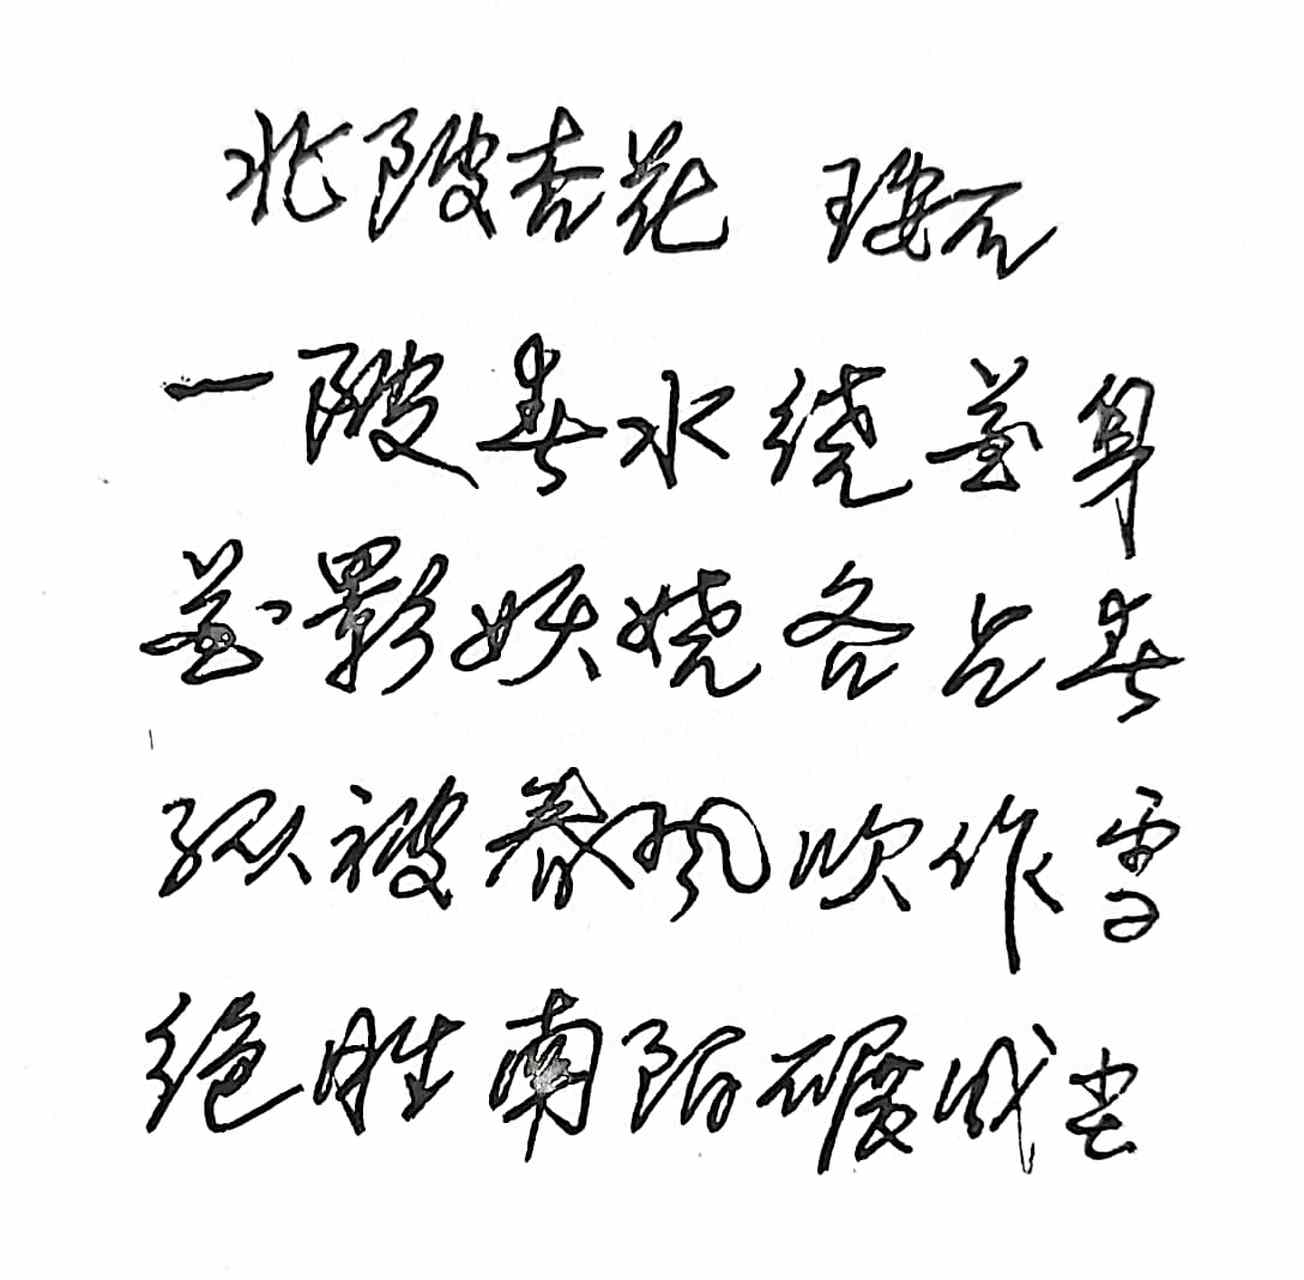 北陂杏花 王安石
一陂春水绕花身
花影妖娆各占春
纵被春风吹作雪
绝胜南陌碾成尘